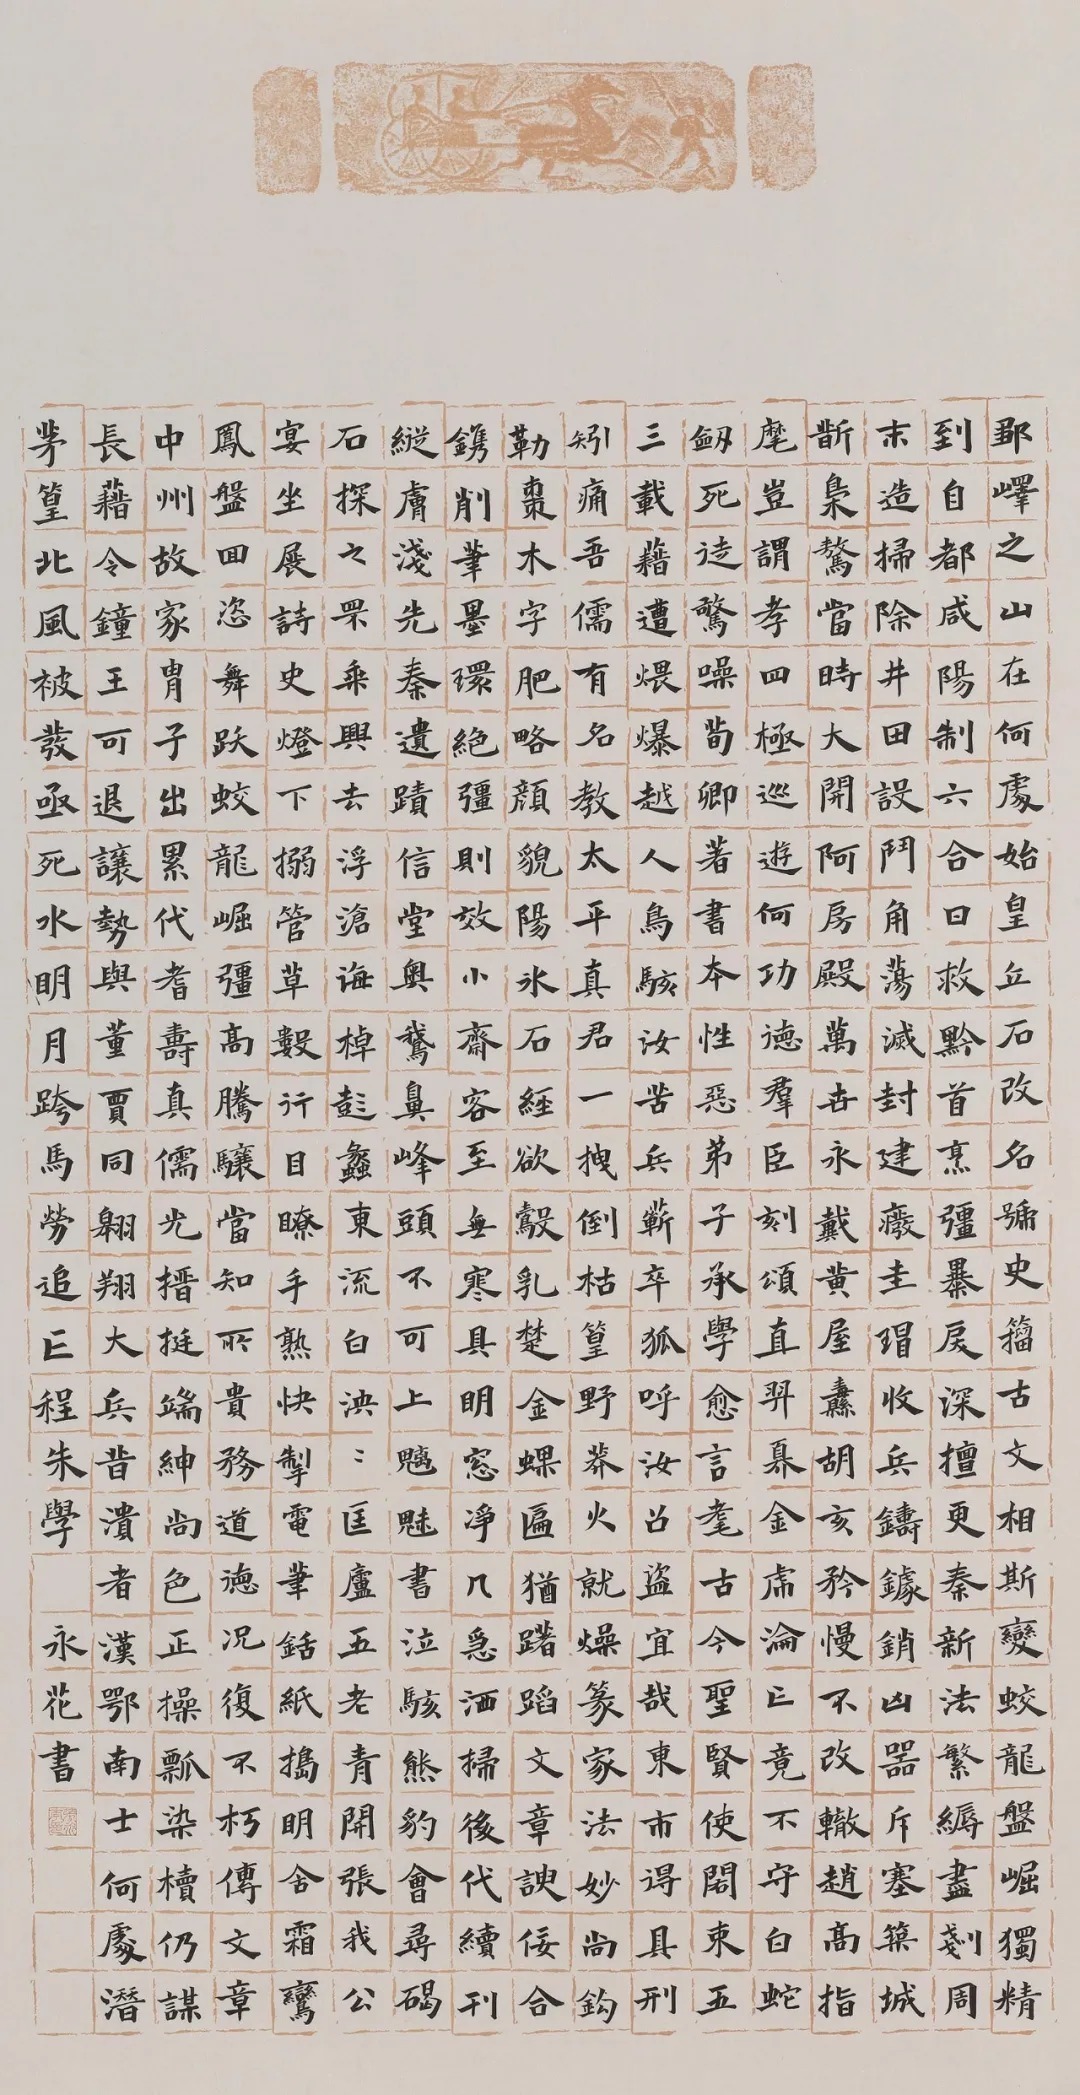 鄒嶧之山在何處始皇立石改名號史籀古文相斯變蛟龍盤崛獨精
到自都咸陽制六合曰救黔首烹彊暴戾深擅更秦新法繁縟盡剗周
末造掃除井田設鬥角蕩滅封建癈圭瑁收兵鑄鐻銷凶器斥塞築城
斮梟驁當時大開阿房殿萬世永戴黃屋纛胡亥矜慢不改轍趙高指
麾豈謂孝四極巡遊何功德羣臣刻頌直羿奡金虎淪亡竟不守白蛇
劔死徒驚噪荀卿著書本性惡弟子承學愈言耄古今聖賢使閣東五
三載藉遭煨爆越人鳥駭汝苦兵蘄卒狐呼汝召盜宜哉東市得具刑
矧痛吾儒有名教太平真君一拽倒枯篁野莽火就燥篆家法妙尚鈎
勒棗木字肥略顏貌陽氷石經欲嗀乳楚金蜾匾猶躇蹈文章諛佞合
鐫削筆墨環絕彊則效小齋容至無寒具明窓凈几急洒掃後代續刊
縱膚淺先秦遺蹟信堂奧鵞鼻峰頭不可上魑魅書泣駭熊豹會尋碣
石探之罘乘興去浮滄海棹彭蠡東流白泱〻匡廬五老青開張我公
宴坐展詩史燈下搦管草數行目瞭手熟快掣電筆銛紙搗明舍霜鸞
鳳盤回恣舞跃蛟龍崛彊高騰驤當知所貴務道德况復不朽傳文章
中州故家胄子出累代耆壽真儒光搢挺端紳尚色正操瓢染櫝仍謀
長藉令鐘王可退讓勢與董賈同翱翔大兵昔潰者漢鄂南士何處潛
茅篁北風被發亟死水明月跨馬勞追亡程朱學
永花書